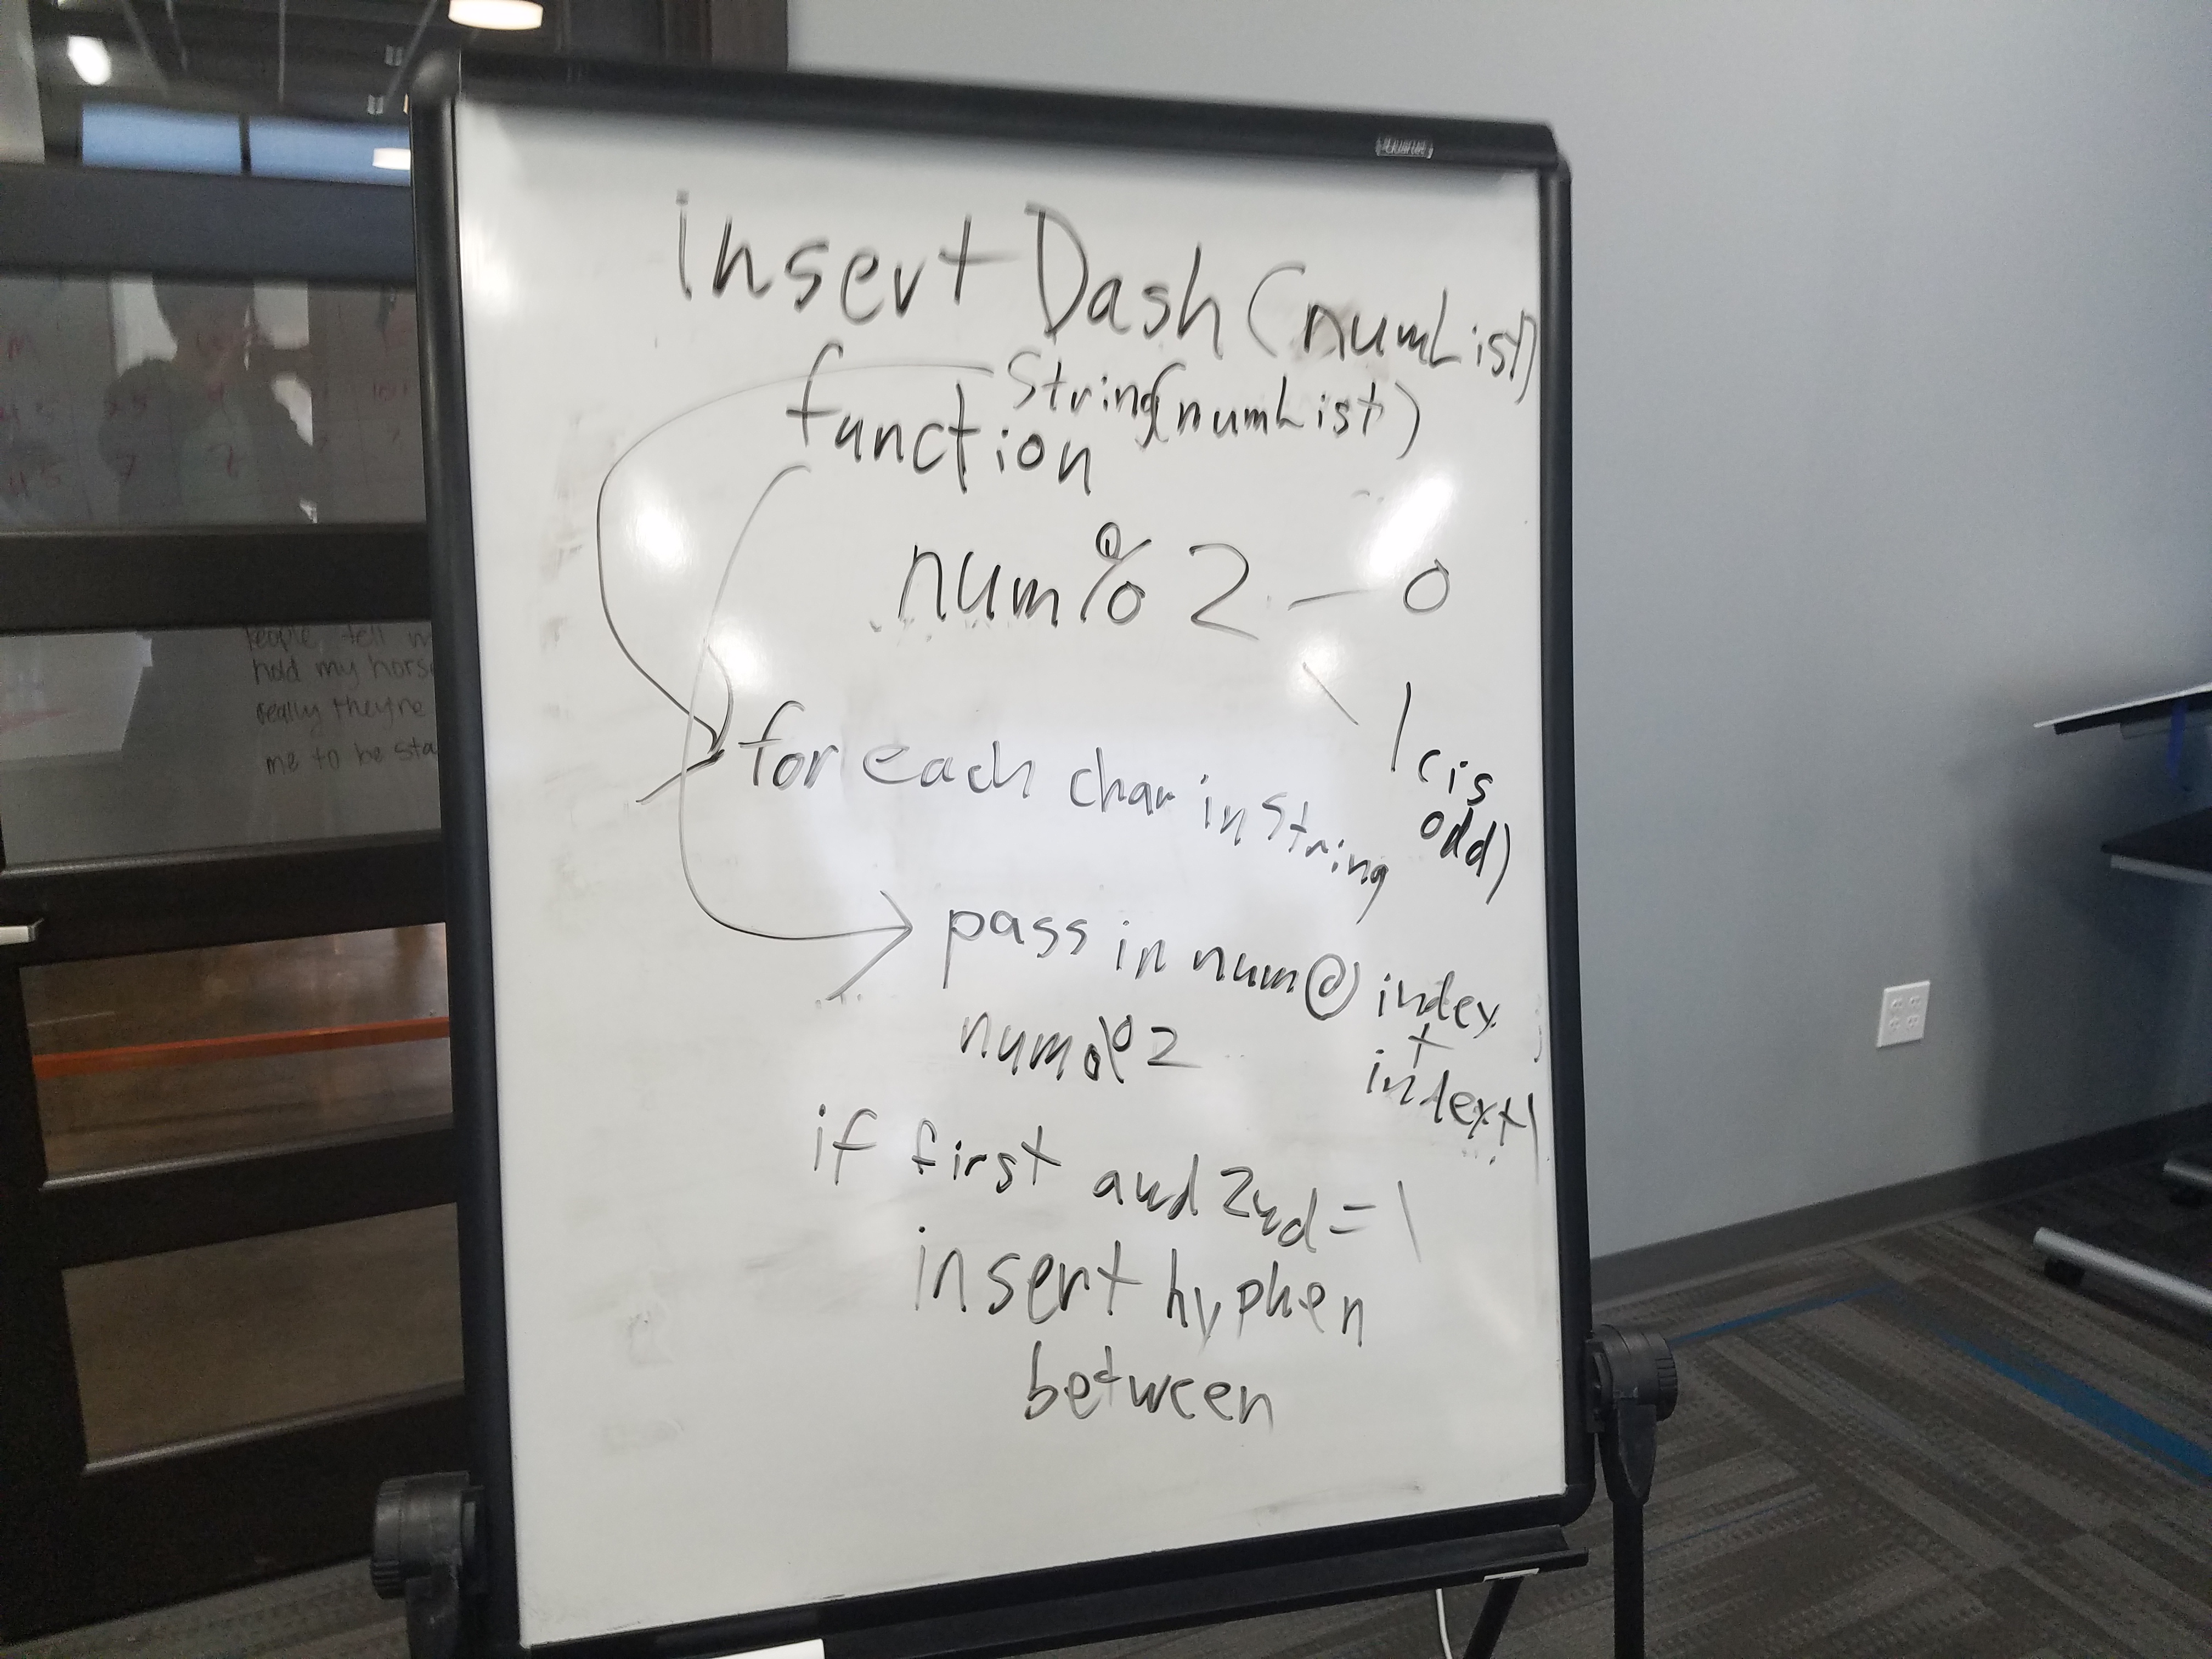 insertDash(numList)
String(numList)
function
num%2 — 0
\ 1 (is
odd)
for each char in string
pass in num@index
+
index+1
num%2
if first and 2nd = 1
insert hyphen
between
people tell
hold my horse
really they're
me to be sta